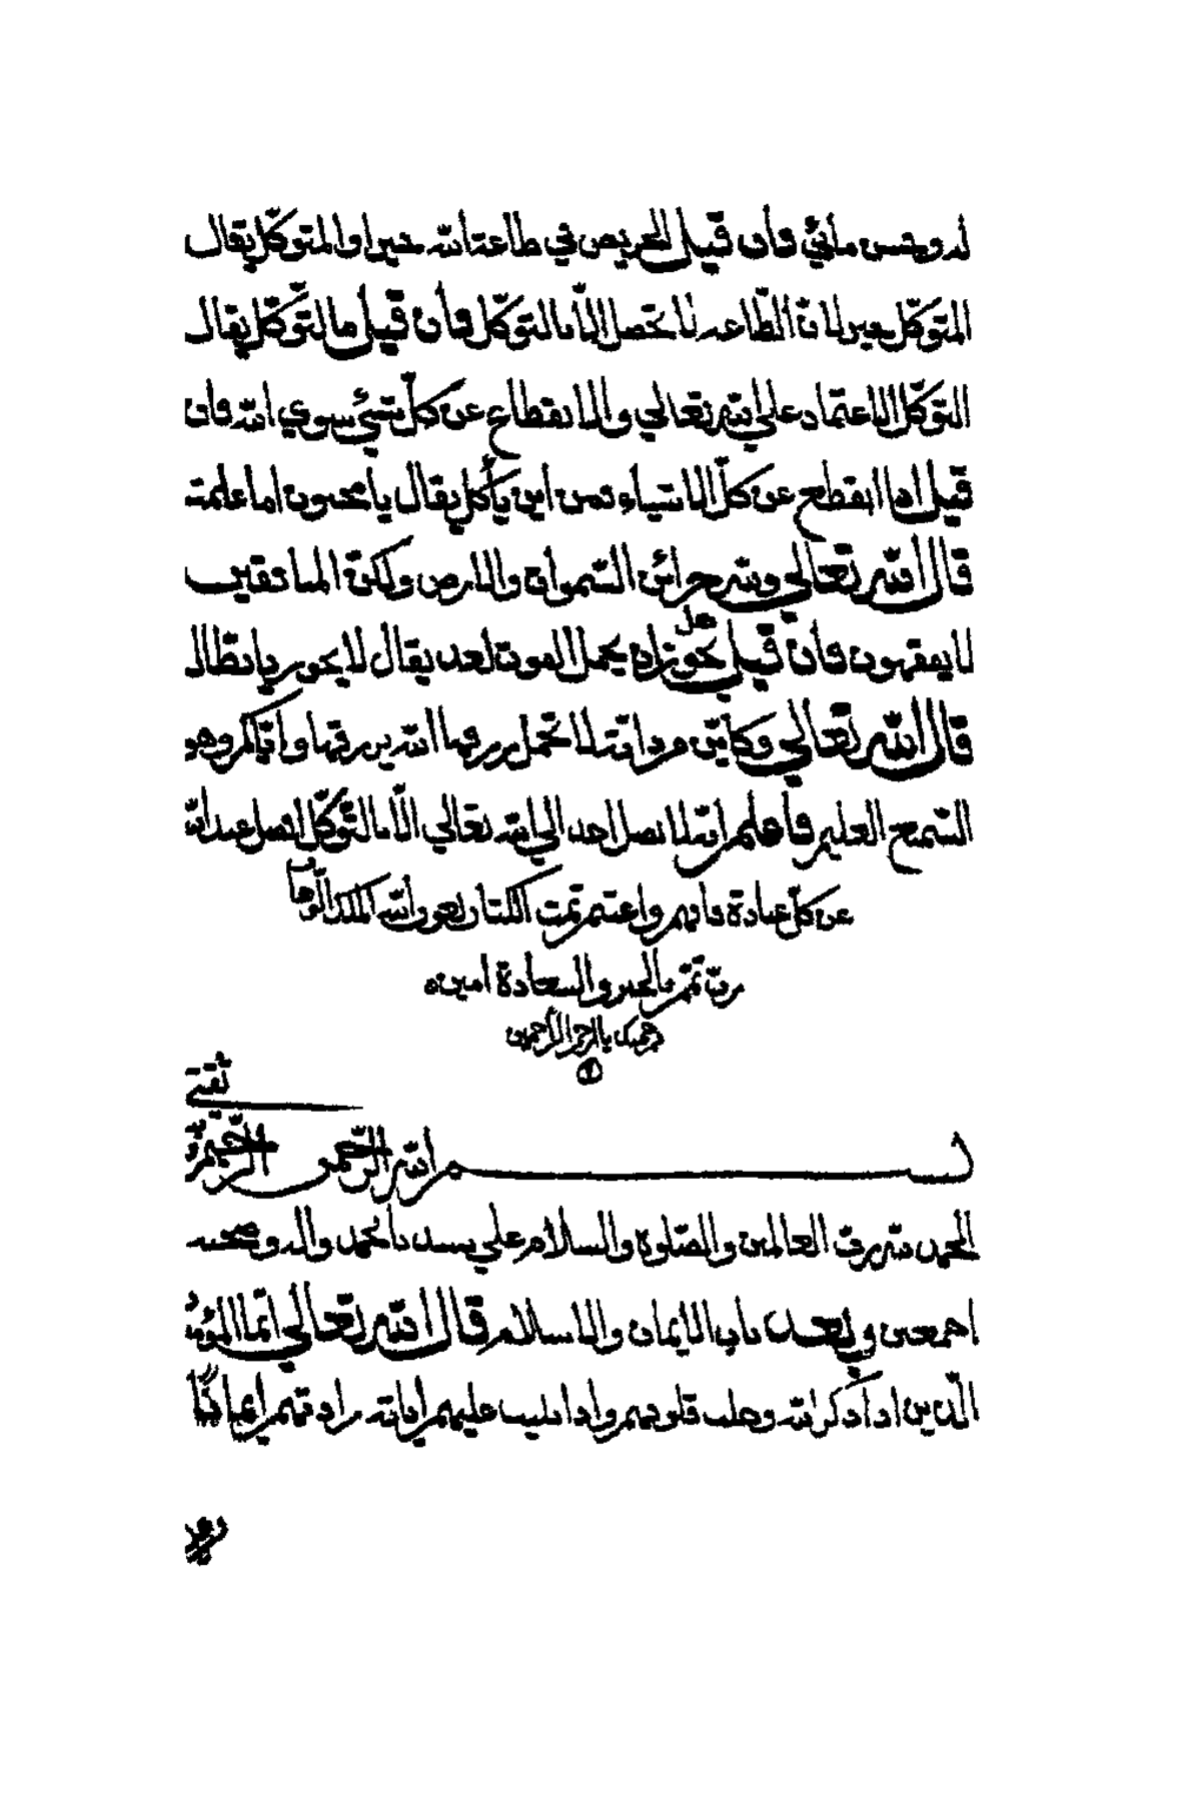 له وحسن مأبي فأن قيل الحريص في طاعة الله خير او المتوكّل يقال
المتوكّل خير لان الطّاعة لا تحصل الّا بالتوكّل فأن قيل ما التّوكّل يقال
التوكّل الاعتماد علي الله تعالي والانقطاع عن كلّ شيئ سوي الله فان
قيل اذا انقطع عن كلّ الاشياء فمن اين يأكل يقال يا مجنون اما علمت
قال الله تعالي ولله خزائن السّموات والارض ولكنّ المنافقين
لا يفقهون فأن قيل هل يجوز زاد يحمل القوت لغد يقال لا يجوز بانّ الله
قال الله تعالي وكأيّن من دابّة لا تحمل رزقها الله يرزقها وايّاكم وهو
السّميع العليم فأعلم انّه لا يصل احد الي الله تعالي الّا بالتّوكّل افضل عند الله
عن كلّ عبادة فافهم واغتنم تمّت الكتاب بعون الله الملك الوهاب
ربّ تمّم بالخير والسعادة امين
برحمتك يا ارحم الرّاحمين
ثقتي
بسم الله الرّحمن الرّحيم
الحمد لله ربّ العالمين والصّلوة والسلام علي سيدنا محمد واله وصحبه
اجمعين وبعد باب الايمان والاسلام قال الله تعالي انّما المؤمنون
الّذين اذا ذكر الله وجلت قلوبهم واذا تليت عليهم اياته زادتهم ايمانًا